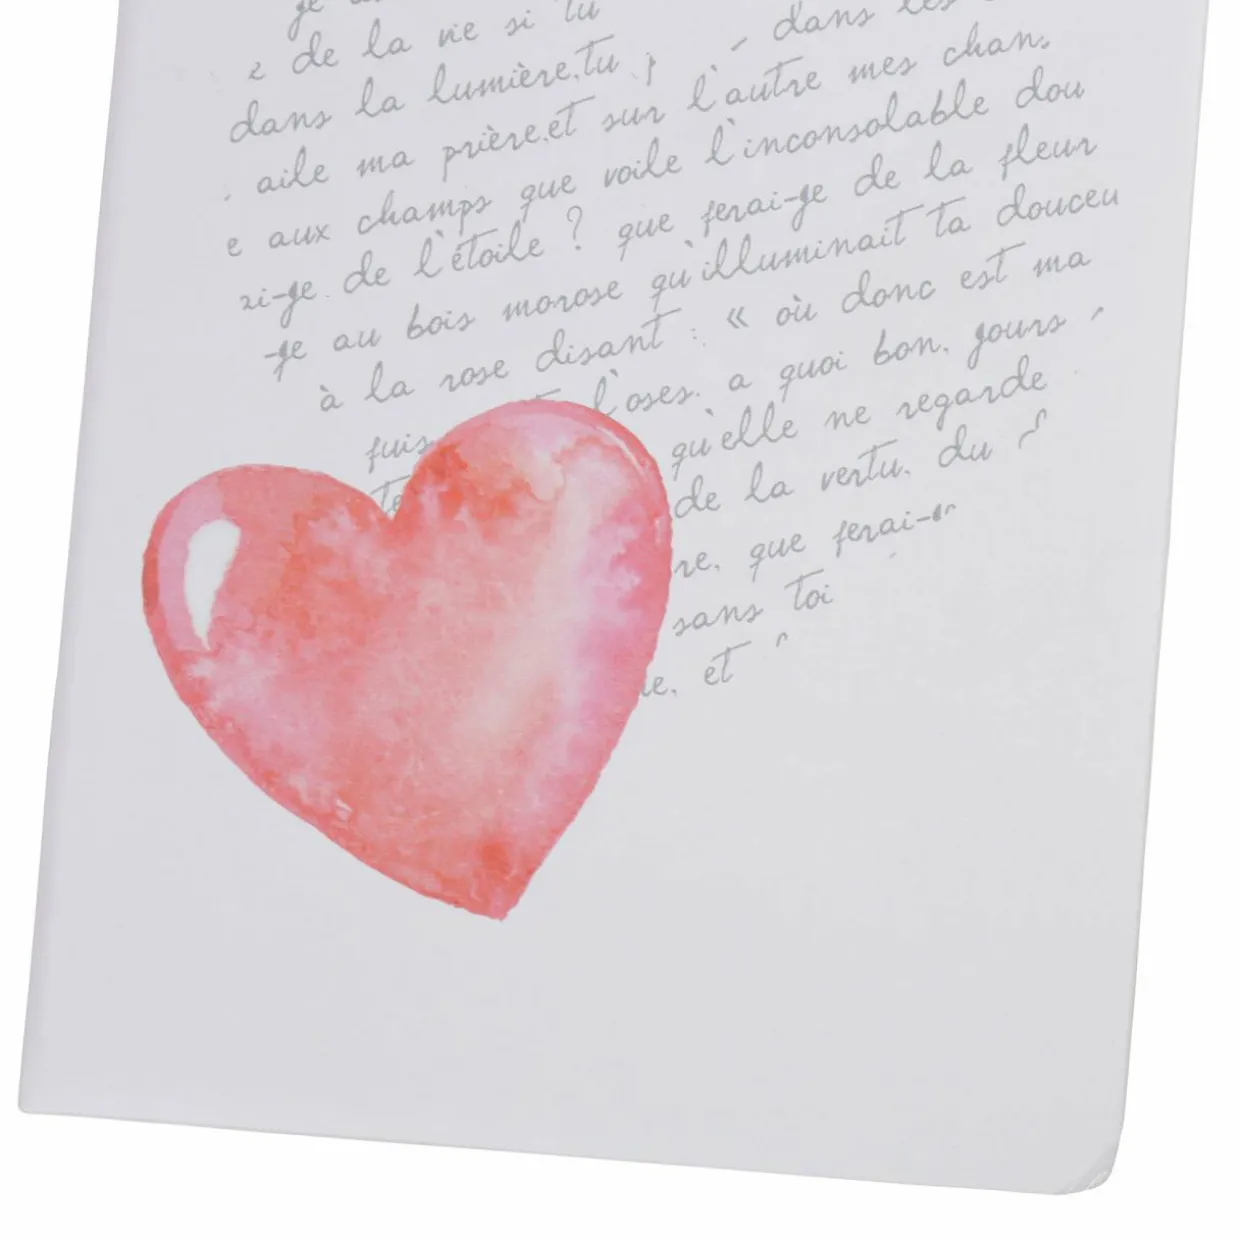 de la vie si tu
dans les
dans la lumière.tu
aile ma prière.et sur l'autre mes chan
e aux champs que voile l'inconsolable dou
de l'étoile ? que ferai-je de la fleur
-je au bois morose qu'illuminait ta douceu
à la rose disant : « où donc est ma
l'oses. a quoi bon. jours
fuis qu'elle ne regarde
te de la vertu. du
re. que ferai-
sans toi
e. et